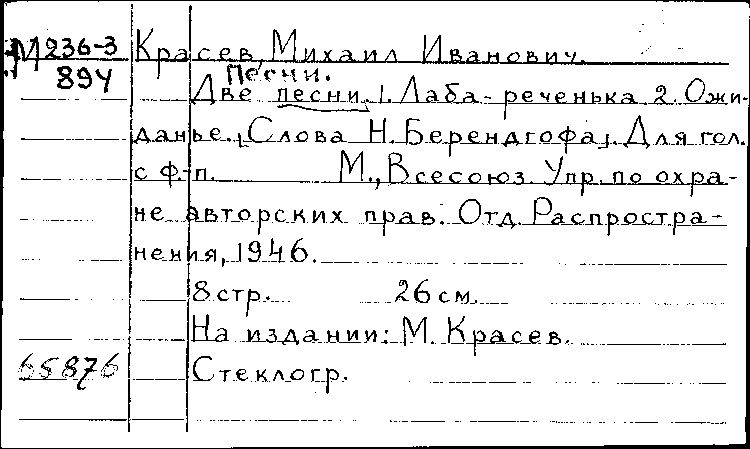 М236-3 Красев, Михаил Иванович.
894 Песни.
Две песни. 1. Лаба-реченька 2. Ожи-
данье. [Слова Н. Берендгофа]. Для гол.
с ф-п. М., Всесоюз. Упр. по охра-
не авторских прав. Отд. Распростра-
нения, 1946.
8 стр. 26 см.
На издании: М. Красев.
65876 Стеклогр.